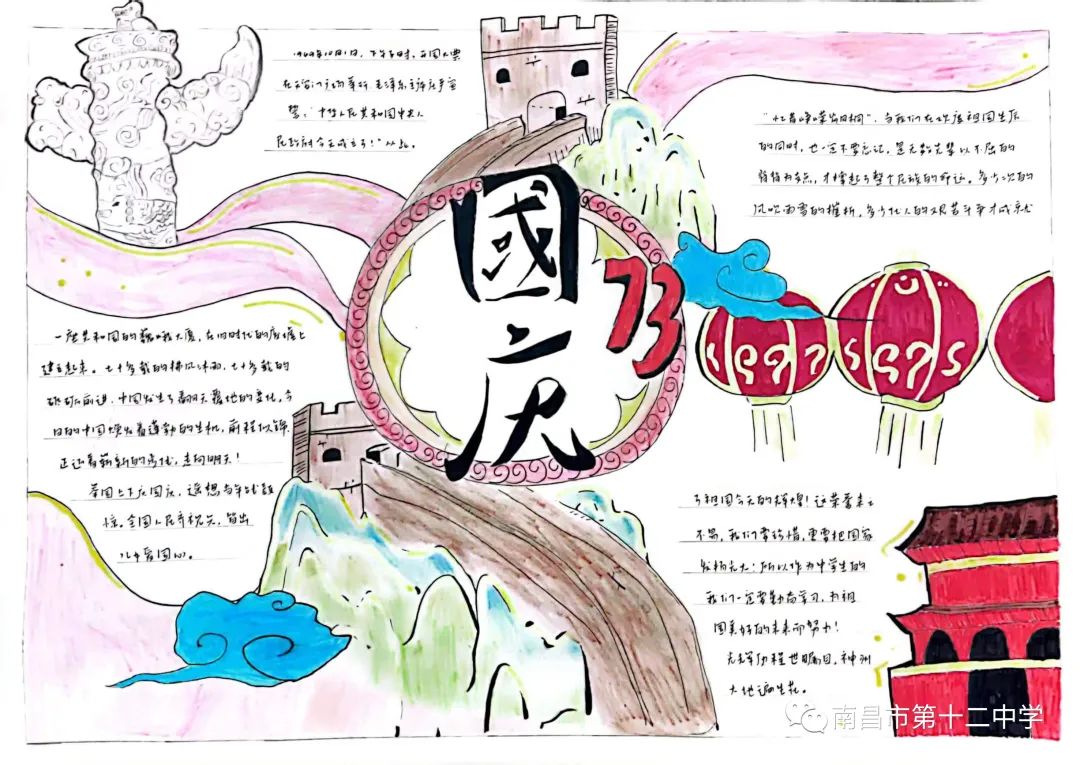 1949年10月1日，下午三时，开国大典
在天安门广场举行，毛泽东主席庄严宣
誓："中华人民共和国中央人
民政府今天成立了！"从此，
一座共和国的巍峨大厦，在旧时代的废墟上
建立起来。七十多载的栉风沐雨，七十多载的
砥砺前进，中国发生了翻天覆地的变化，今
日的中国焕发着蓬勃的生机，前程似锦
正迈着崭新的步伐，走向明天！
举国上下庆国庆，遥想当年战
惊，全国人民齐祝兴，皆出
儿女爱国心。
國
庆
73
"忆昔峥嵘岁月稠"，当我们在欢度祖国生辰
的同时，也一定不要忘记，是无数先辈以不屈的
脊梁为支点，才撑起了整个民族的命运。多少次的
风吹雨雪的摧折，多少代人的艰苦斗争才成就
了祖国今天的辉煌！这荣誉来之
不易，我们要珍惜，更要把国家
发扬光大！所以作为中学生的
我们一定要勤奋学习，为祖
国美好的未来而努力！
光辉历程世瞩目，神州
大地遍生花。
南昌市第十二中学